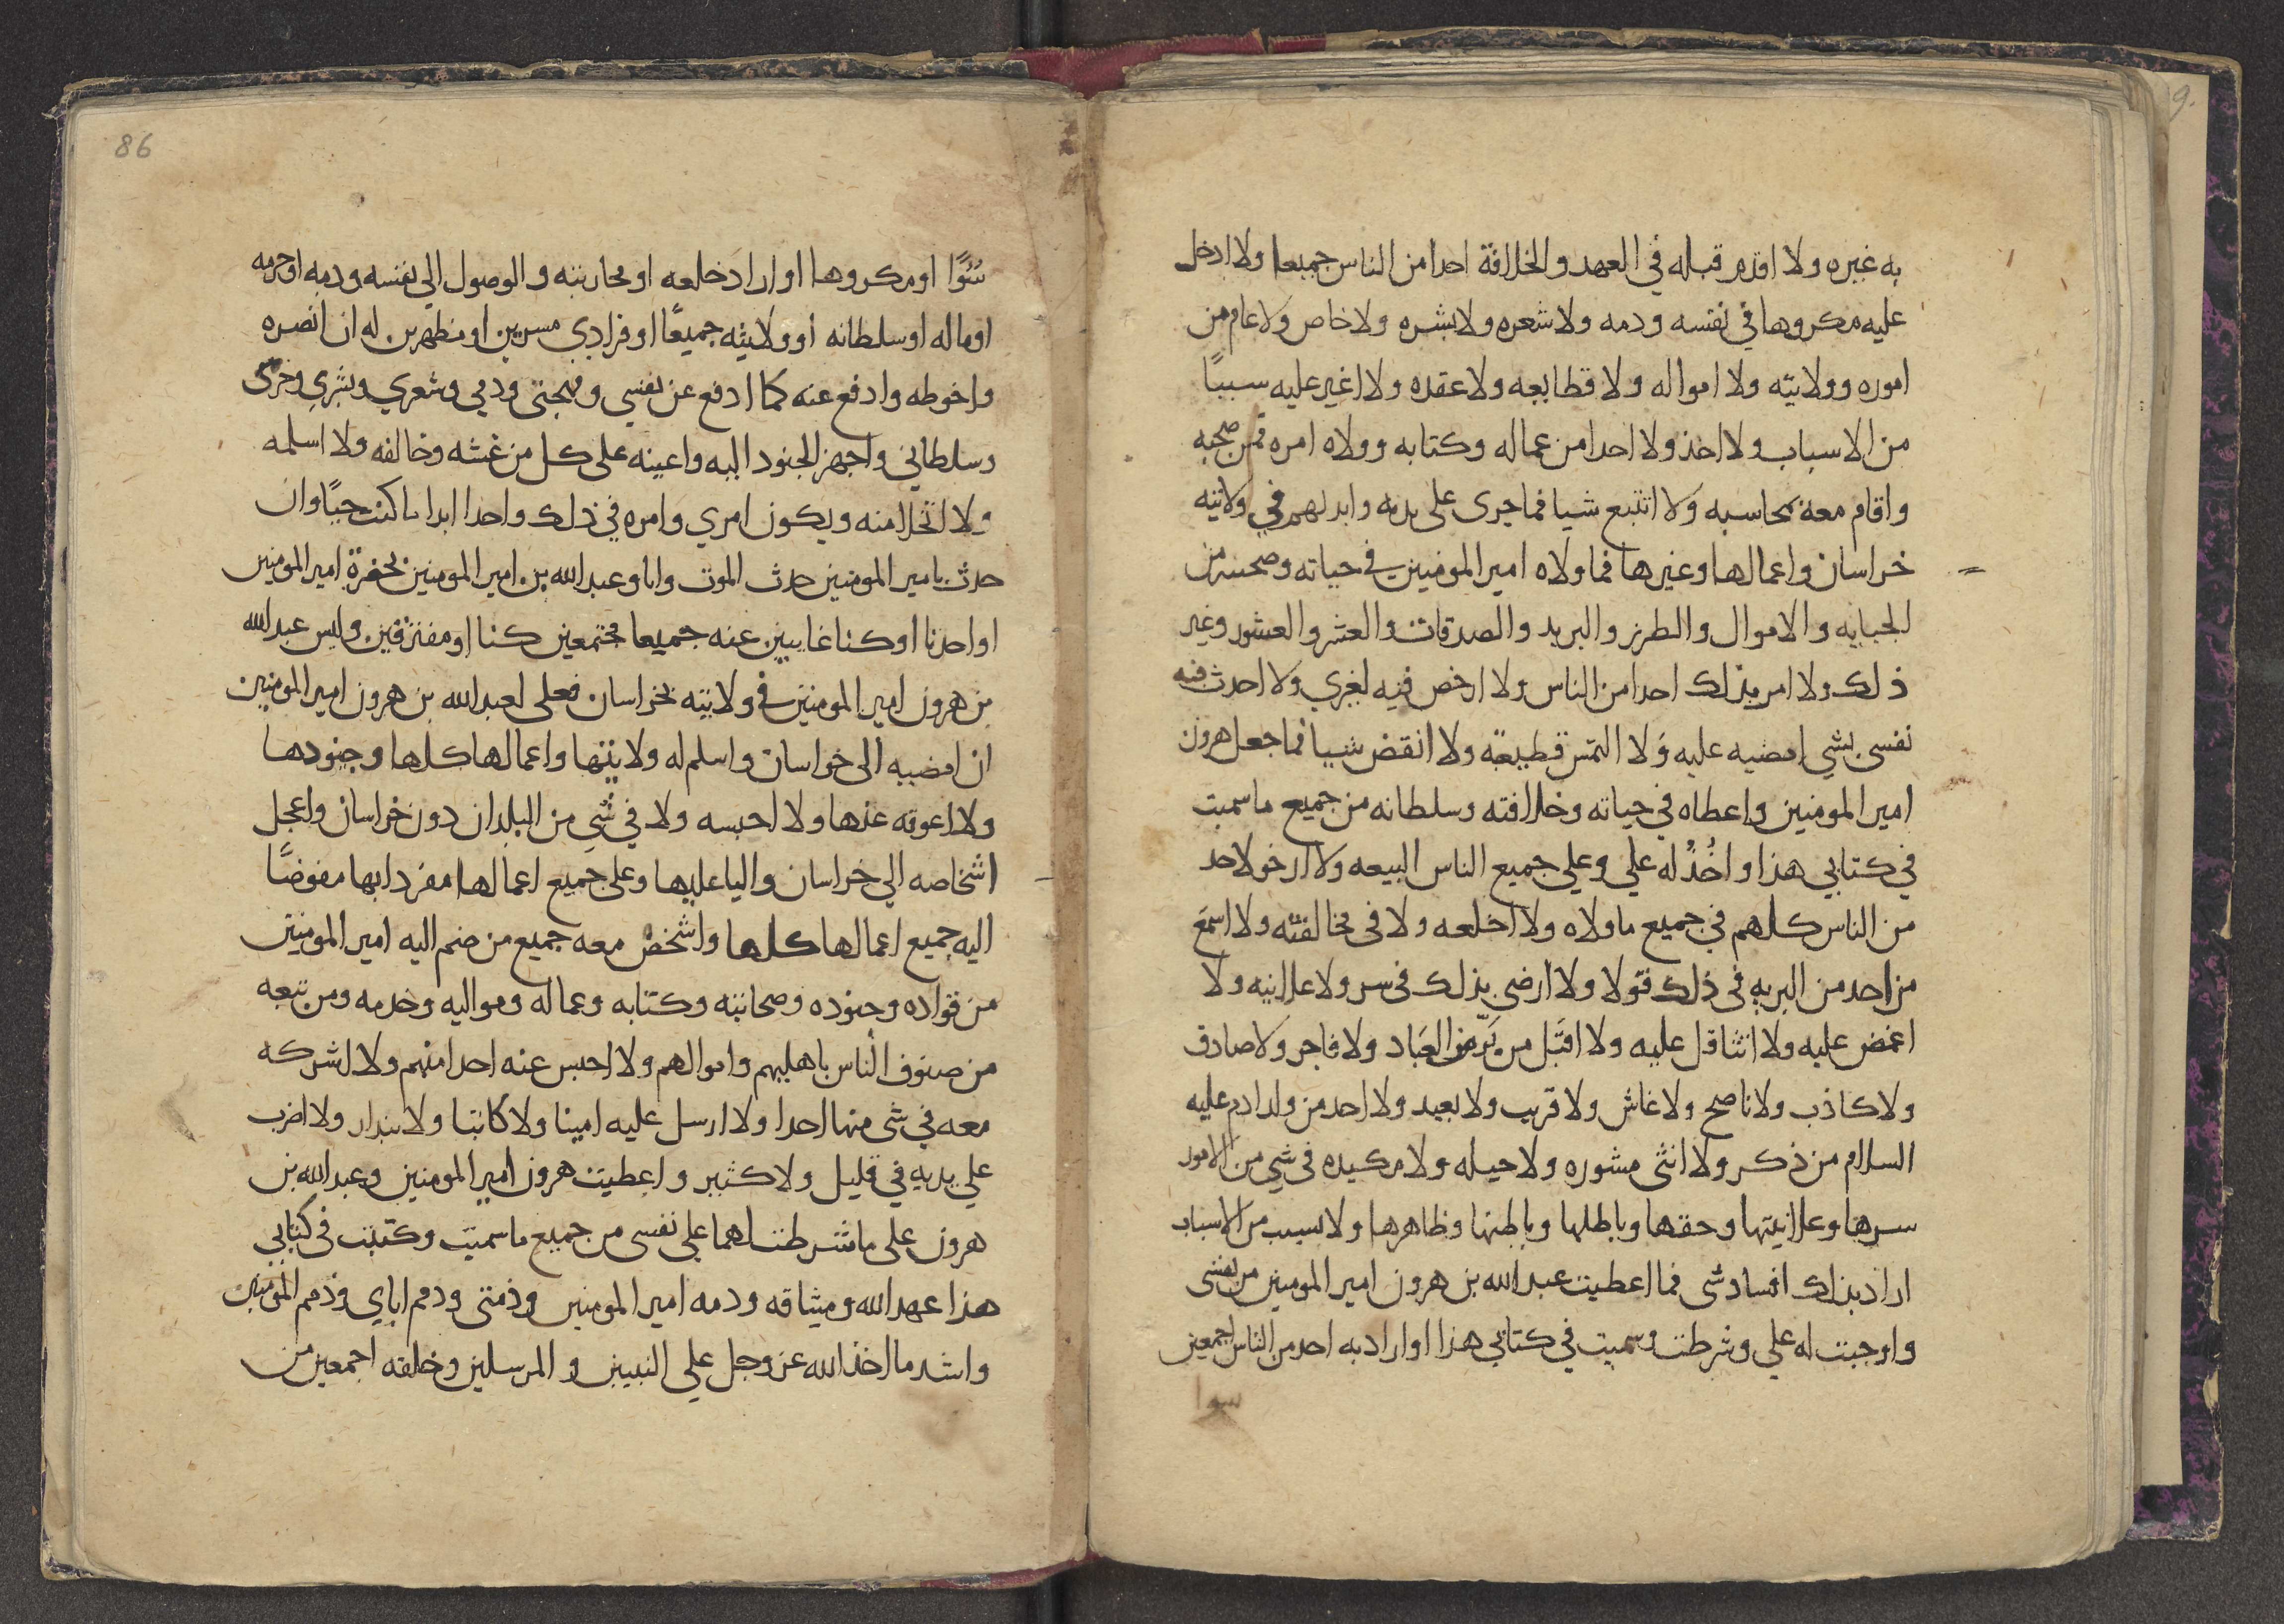 به غيره ولا اقدم قبله في العهد والخلافة احدا من الناس جميعا ولا ادخل
عليه مكروها في نفسه ودمه ولا شعره ولا بشره ولا خاص ولا عام من
اموره وولايته ولا امواله ولا قطايعه ولا عقده ولا اغير عليه سببًا
من الاسباب ولا اخذ ولا احدا من عماله وكتابه وولاه امره ممن صحبه
واقام معه محاسبه ولا اتتبع شيا مما جرى على يديه وايديهم في ولايته
خراسان واعمالها وغيرها مما ولاه امير المومنين في حياته وصحته من
الجبايه والاموال والطرز والبريد والصدقات والعشر والعشور وغير
ذلك ولا امر بذلك احدا من الناس ولا ارخص فيه لغيري ولا احدث فيه
نفسى بشي امضيه عليه ولا التمس قطيعة ولا انقض شيا مما جعل هرون
امير المومنين واعطاه في حياته وخلافته وسلطانه من جميع ما سميت
في كتابي هذا واخُذُ له علي وعلي جميع الناس البيعه ولا ارخو لاحد
من الناس كلهم في جميع ما ولاه ولا اخلعه ولا في مخالفته ولا اسمع
من احد من البريه في ذلك قولا ولا ارضى بذلك في سر ولا علانيه ولا
اغمض عليه ولا اتثاقل عليه ولا اقبَل من بَرّ من العباد ولا فاجر ولا صادق
ولا كاذب ولا ناصح ولا غاش ولا قريب ولا بعيد ولا احد من ولد ادم عليه
السلام من ذكر ولا انثى مشوره ولا حيله ولا مكيده في شي من الامور
سرها وعلانيتها وحقها وباطلها وباطنها وظاهرها ولا بسبب من الاسباب
اراد بذلك افساد شى مما اعطيت عبد الله بن هرون امير المومنين من نفسى
واوجبت له علي وشرطت وسميت في كتابي هذا او اراد به احد من الناس اجمعين
سوا
86
سُوًا او مكروها او اراد خلعه او محاربته والوصول الي نفسه ودمه او حرمه
او ماله او سلطانه او ولايته جميعًا او فرادي مسرين او مظهرين له ان انصره
واحوطه وادفع عنه كما ادفع عن نفسي ومهجتي ودمي وشعري وبشري وحرمى
وسلطاني واجهز الجنود اليه واعينه على كل من غشه وخالفه ولا اسلمه
ولا اتخلا منه ويكون امري وامره في ذلك واحدا ابدا ما كنت حيًا وان
حدث بامير المومنين حدث الموت وانا وعبد الله بن امير المومنين بحضرة امير المومنين
او احدنا او كنا غايبين عنه جميعا مجتمعين كنا او مفترقين وليس عبد الله
بن هرون امير المومنين في ولايته بخراسان فعلى لعبد الله بن هرون امير المومنين
ان امضيه الى خراسان واسلم له ولايتها واعمالها كلها وجنودها
ولا اعوقه عنها ولا احبسه ولا في شي من البلدان دون خراسان واعجل
اشخاصه الي خراسان واليا عليها وعلى جميع اعمالها مفردا بها مفوضًا
اليه جميع اعمالها كلها واشخص معه جميع من ضم اليه امير المومنين
من قواده وجنوده وصحابته وكتابه وعماله ومواليه وخدمه ومن تبعه
من صنوف الناس باهليهم واموالهم ولا احبس عنه احدا منهم ولا اشرك
معه في شى منها احدا ولا ارسل عليه امينا ولا كاتبا ولا بندار ولا اضرب
علي يديه في قليل ولا كثير واعطيت هرون امير المومنين وعبد الله بن
هرون على ما شرطت لهما علي نفسى من جميع ما سميت وكتبت في كتابي
هذا عهد الله وميثاقه وذمه امير المومنين وذمتى وذمم اباي وذمم المومنين
واشد ما اخذ الله عز وجل علي النبيين والمرسلين وخلقه اجمعين من